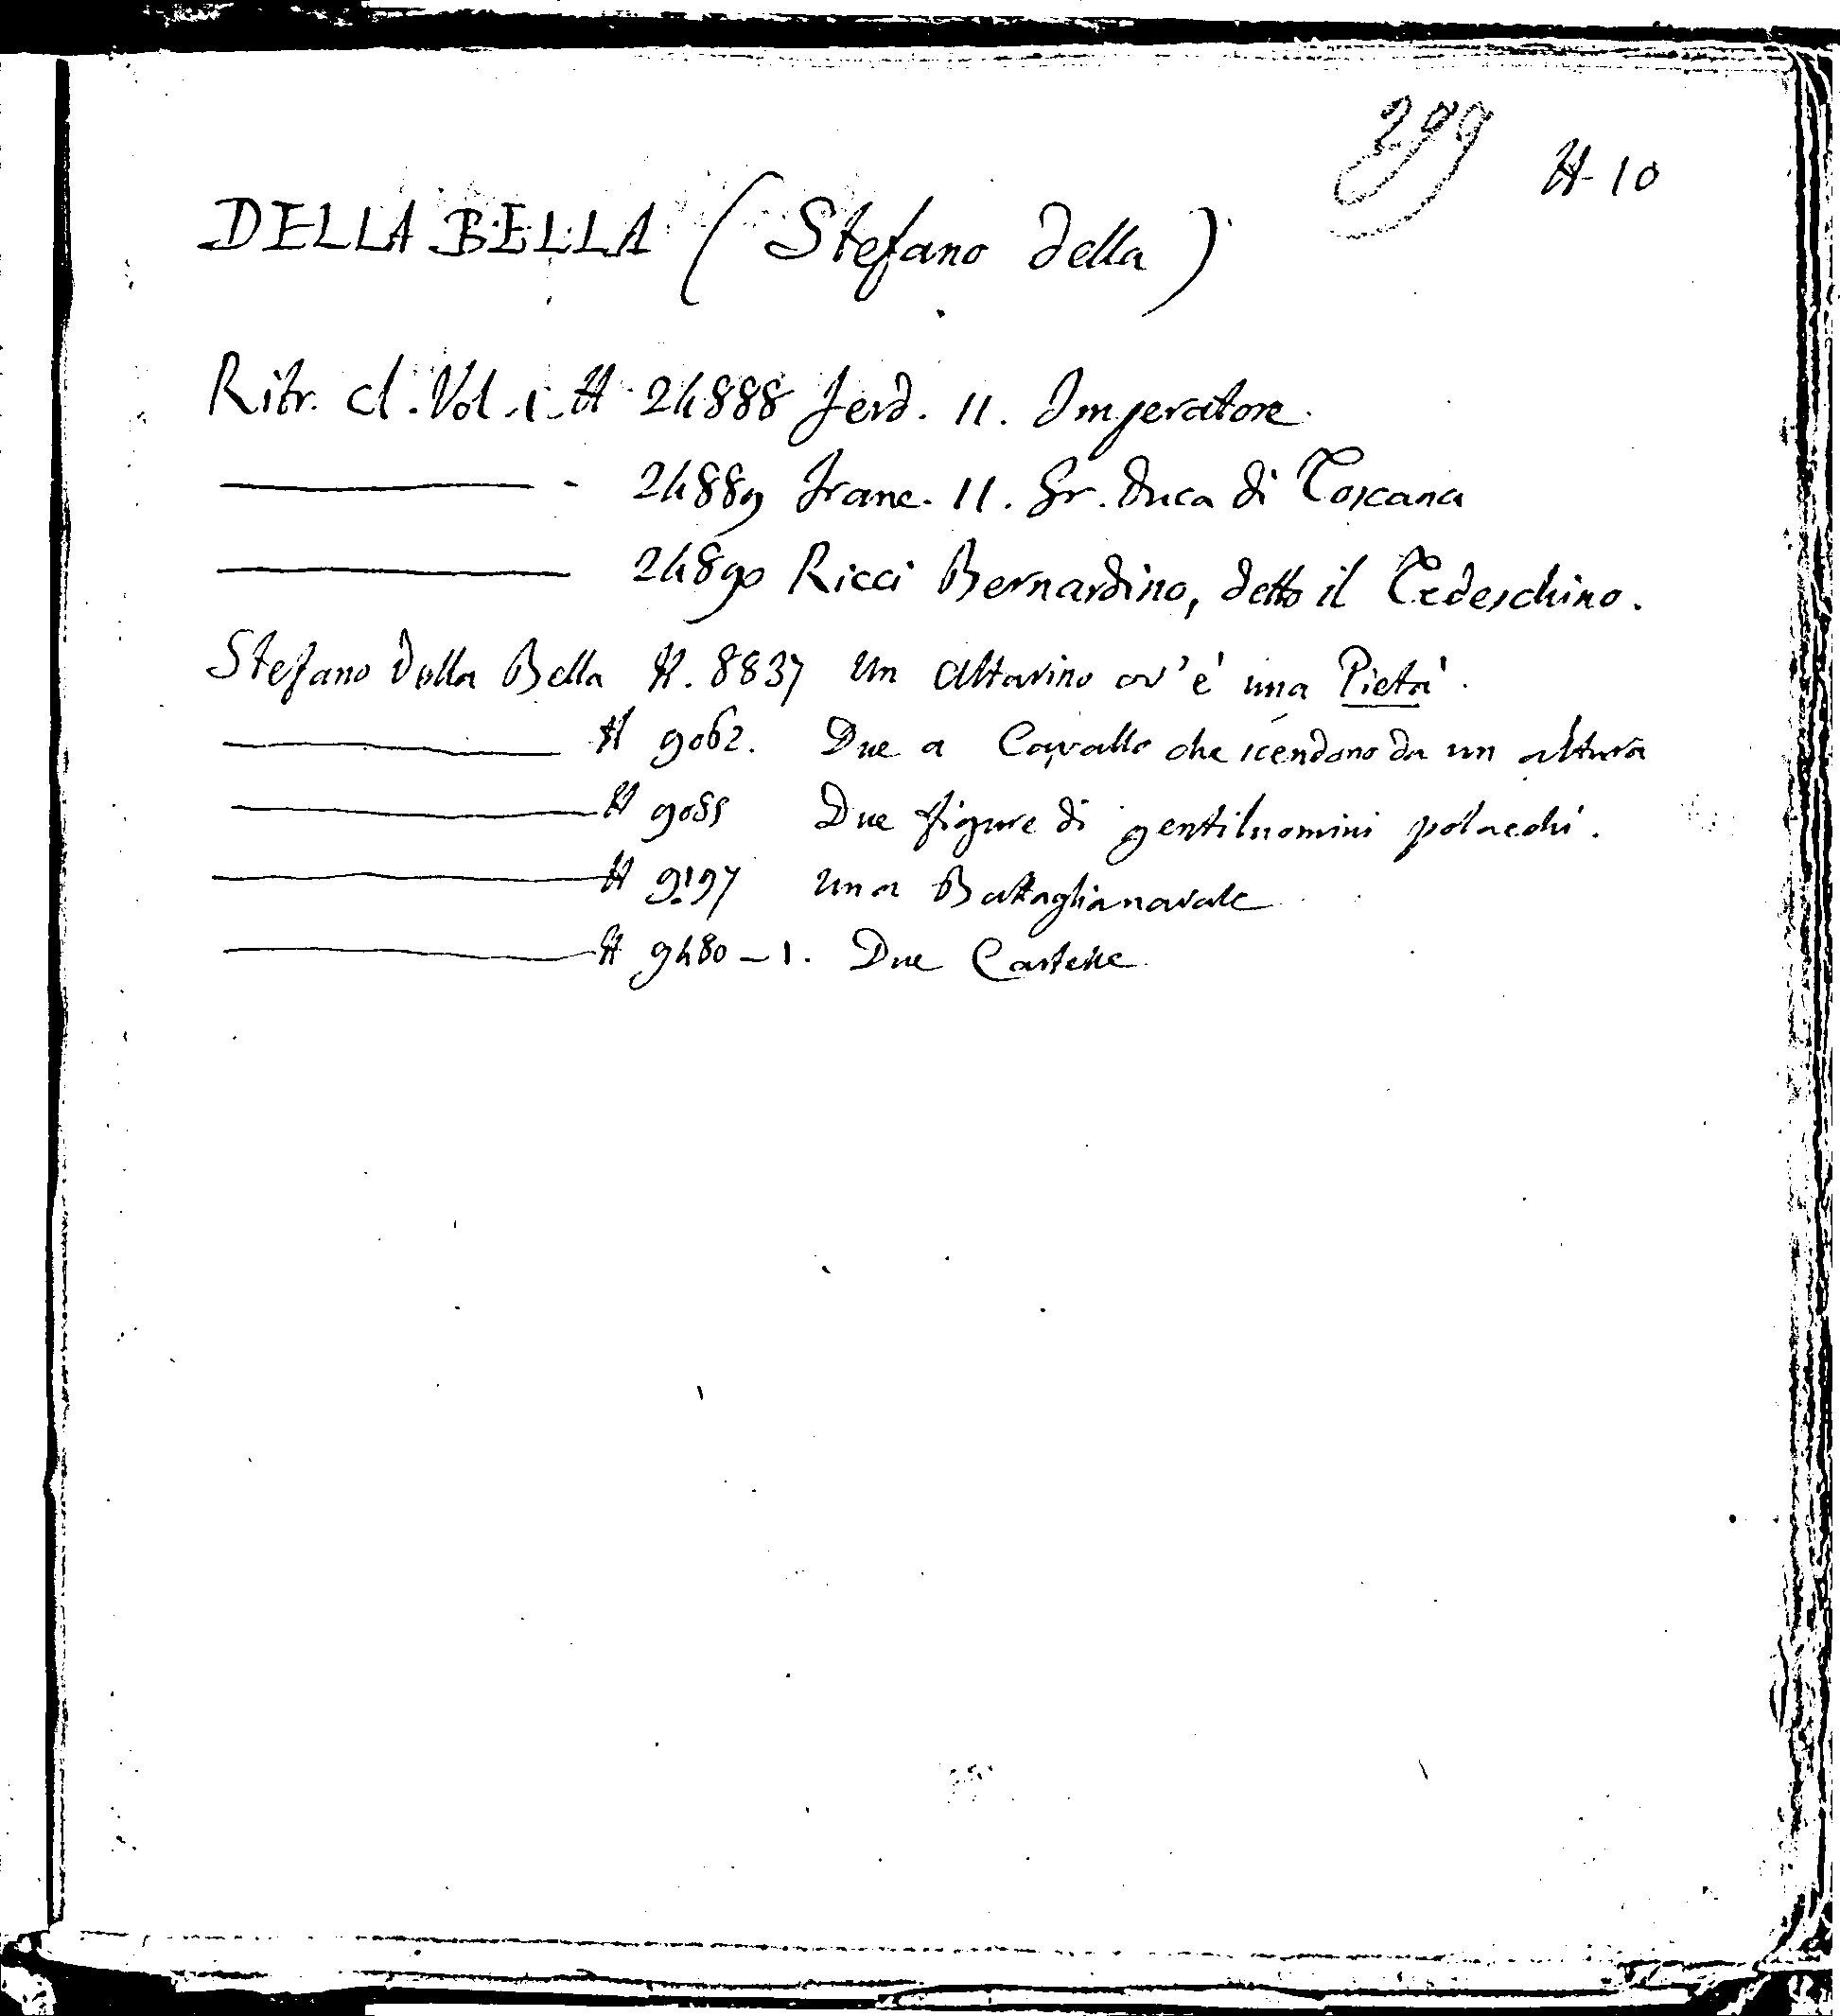 299 N-10
DELLA BELLA (Stefano della)
Ritr. cl. Vol. 1. N 24888 Ferd. II. Imperatore
———— - 24889 Franc. II. Gr. Duca di Toscana
———— 24890 Ricci Bernardino, detto il Tedeschino.
Stefano Della Bella N. 8837 Un Altarino ov'è una Pietà.
———— N 9062. Due a Cavallo che scendono da un altura
———— N 9055 Due figure di gentiluomini polacchi.
———— N 9197 Una Battaglia navale
———— N 9480-1. Due Cartelle